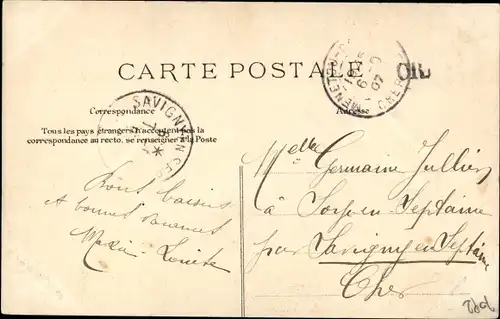 CARTE POSTALE
Correspondance
Adresse
Tous les pays étrangers n'acceptent pas la
correspondance au recto, se renseigner à la Poste
SAVIGNY EN SEP
CHER
OR
Bons baisers
et bonnes vacances
Marie Louise
Melle Germaine Jullien
à Soye en Septaine
par Savigny en Septaine
Cher